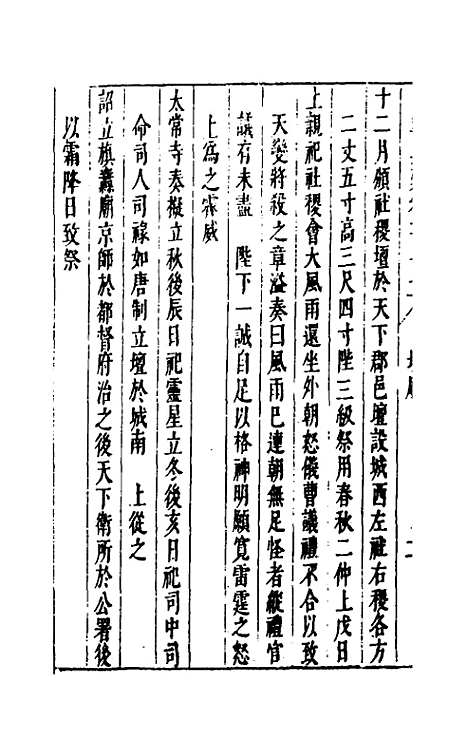 十二月頒社稷壇於天下郡邑壇設城西左社右稷各方
二丈五寸高三尺四寸陛三級祭用春秋二仲上戊日
上親祀社稷會大風雨還坐外朝怒儀曹議禮不合以致
天變將殺之章溢奏曰風雨已連朝無足怪者縱禮官
議有未盡 陛下一誠自足以格神明願寬雷霆之怒
上為之霽威
太常寺奏擬立秋後辰日祀靈星立冬後亥日祀司中司
命司人司祿如唐制立壇於城南 上從之
詔立旗纛廟京師於都督府治之後天下衛所於公署後
以霜降日致祭